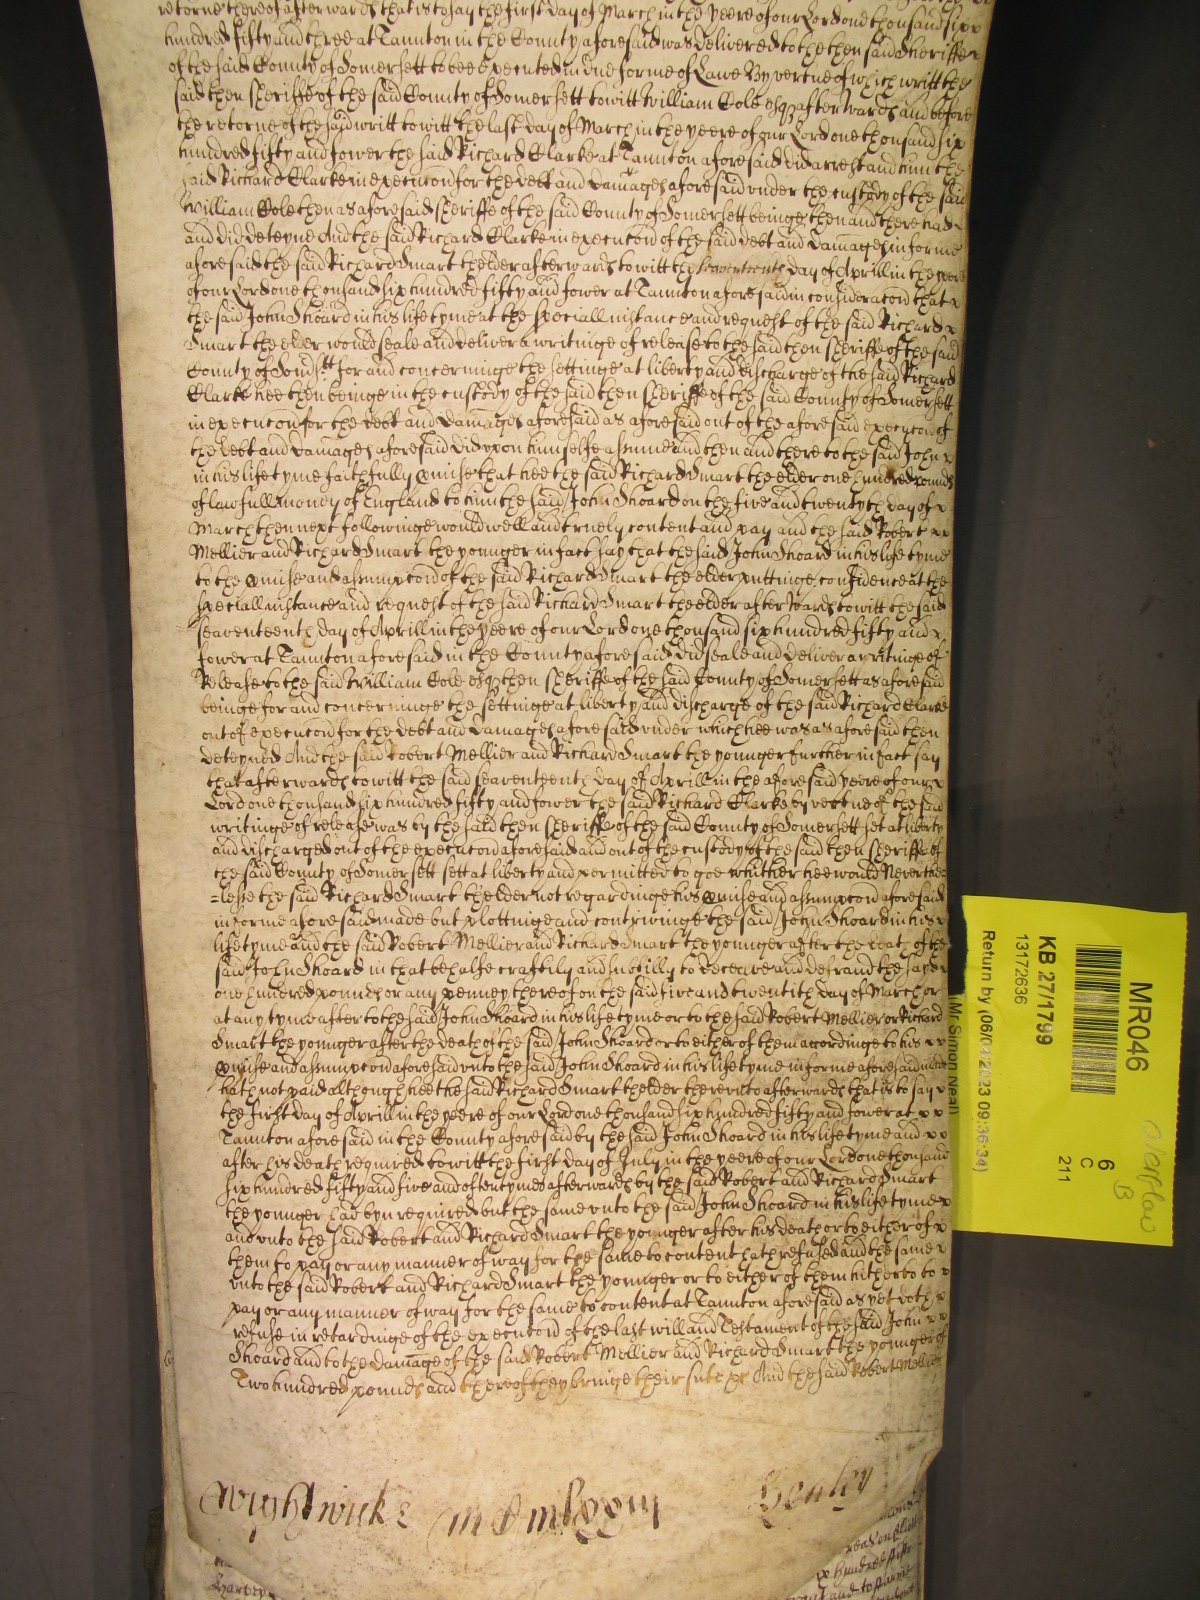 retorne thereof afterwards that is to say the first day of March in the yeere of our Lord one thousand six
hundred fifty and three at Taunton in the County aforesaid was delivered to the then said Sheriffe
of the said County of Somersett to bee executed in due forme of Lawe By vertue of which writt the
said then Sheriffe of the said County of Somersett to witt William Cole esqr afterwards and before
the retorne of the said writt to witt the last day of March in the yeere of our Lord one thousand six
hundred fifty and fower the said Richard Clarke at Taunton aforesaid did arrest and him the
said Richard Clarke in execucon for the debt and damages aforesaid under the custody of the said
William Cole then as aforesaid Sheriffe of the said County of Somersett beinge then and there had
and did deteyne And the said Richard Clarke in execucon of the said debt and damages in forme
aforesaid the said Richard Smart the elder afterwards to witt the seaventeenth day of Aprill in the yeere
of our Lord one thousand six hundred fifty and fower at Taunton aforesaid in consideracon that
the said John Shoard in his life tyme at the speciall instance and request of the said Richard
Smart the elder would seale and deliver a writinge of release to the said then Sheriffe of the said
County of Somsett for and concerninge the settinge at liberty and discharge of the said Richard
Clarke hee then beinge in the custody of the said then Sheriffe of the said County of Somersett
in execucon for the debt and damages aforesaid as aforesaid out of the aforesaid execucon of
the debt and damages aforesaid did upon himselfe assume and then and there to the said John
in his life tyme faithfully pmise that hee the said Richard Smart the elder one hundred pounds
of lawfull money of England to him the said John Shoard on the five and twentyth day of
March then next followinge would well and truely content and pay and the said Robert
Mellier and Richard Smart the younger in fact say that the said John Shoard in his life tyme
to the pmise and assumpcon of the said Richard Smart the elder puttinge confidence at the
speciall instance and request of the said Richard Smart the elder afterwards to witt the said
seaventeenth day of Aprill in the yeere of our Lord one thousand six hundred fifty and
fower at Taunton aforesaid in the County aforesaid did seale and deliver a writinge of
Release to the said William Cole esqr then Sheriffe of the said County of Somersett as aforesaid
beinge for and concerninge the settinge at liberty and discharge of the said Richard Clarke
out of execucon for the debt and damages aforesaid under which hee was as aforesaid then
deteyned And the said Robert Mellier and Richard Smart the younger further in fact say
that afterwards to witt the said seaventeenth day of Aprill in the aforesaid yeere of our
Lord one thousand six hundred fifty and fower the said Richard Clarke by vertue of the said
writinge of release was by the said then Sheriffe of the said County of Somersett set at liberty
and discharged out of the execucon aforesaid and out of the custody of the said then Sheriffe of
the said County of Somersett sett at liberty and permitted to goe whither hee would Neverthe=
=lesse the said Richard Smart the elder not regardinge his pmise and assumpcon aforesaid
in forme aforesaid made but plottinge and contriveinge the said John Shoard in his
life tyme and the said Robert Mellier and Richard Smart the younger after the death of the
said John Shoard in that behalfe craftily and subtilly to deceave and defraud the sayd
one hundred pounds or any penney thereof on the said five and twentith day of March or
at any tyme after to the said John Shoard in his life tyme or to the said Robert Mellier or Richard
Smart the younger after the death of the said John Shoard or to either of them accordinge to his
pmise and assumpcon aforesaid unto the said John Shoard in his life tyme in forme aforesaid made
hath not paid although hee the said Richard Smart the elder thereunto afterwards that is to say
the first day of Aprill in the yeere of our Lord one thousand six hundred fifty and fower at
Taunton aforesaid in the County aforesaid by the said John Shoard in his life tyme and
after his death required to witt the first day of July in the yeere of our Lord one thousand
six hundred fifty and five and often tymes afterwards by the said Robert and Richard Smart
the younger had byn required but the same unto the said John Shoard in his life tyme
and unto the said Robert and Richard Smart the younger after his death or to either of
them to pay or any manner of way for the same to content hath refused and the same
unto the said Robert and Richard Smart the younger or to either of them hitherto to
pay or any manner of way for the same to content at Taunton aforesaid as yet doth
refuse in retardinge of the execucon of the last will and Testament of the said John
Shoard and to the damage of the said Robert Mellier and Richard Smart the younger of
Two hundred pounds and thereof they bringe their sute &c And the said Robert Mellier
Wightwicke
Henley
Harvey
MR046
KB 27/1799
13172636
Return by (06/04/2023 09:36:34)
(Mr Simon Neal)
6
C
211
Overflow
B